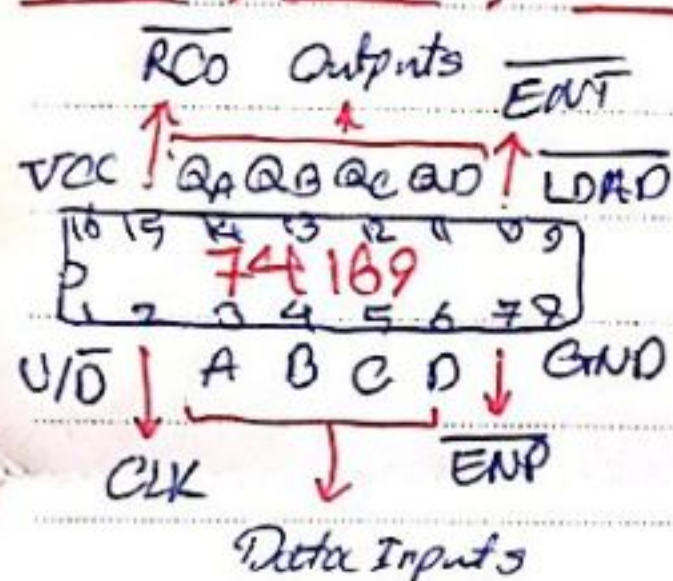 R̅C̅O̅ Outputs E̅N̅T̅
VCC QA QB QC QD L̅O̅A̅D̅
16 15 14 13 12 11 10 9
74 169
1 2 3 4 5 6 7 8
U/D̅ A B C D GND
CLK E̅N̅P̅
Data Inputs